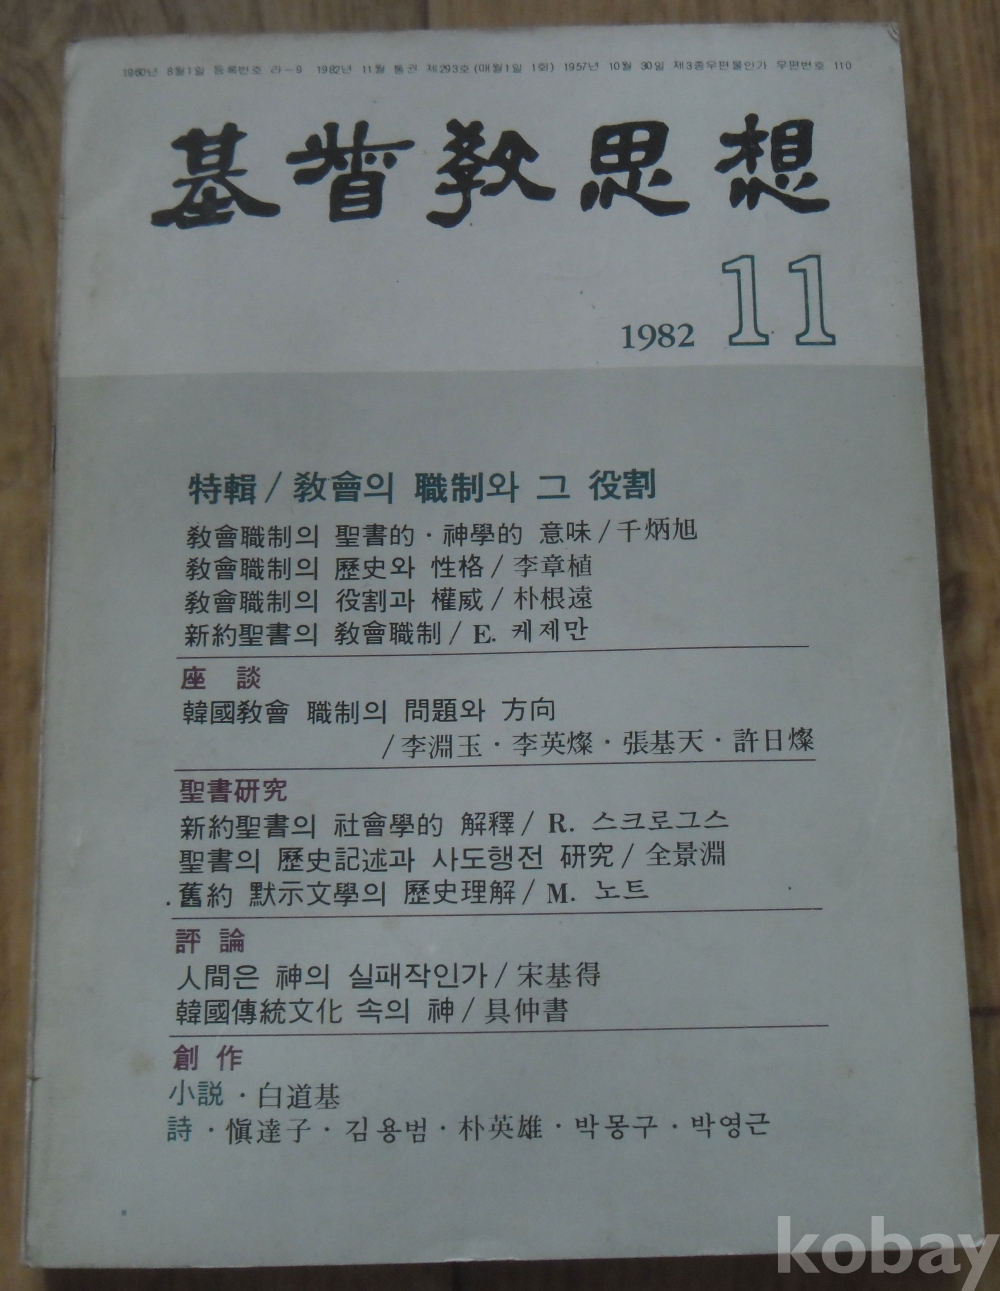 1960년 8월1일 등록번호 라-9 1982년 11월 통권 제293호(매월1일 1회) 1957년 10월 30일 제3종우편물인가 우편번호 110
基督敎思想
1982 11
特輯/敎會의 職制와 그 役割
敎會職制의 聖書的·神學的 意味/千炳旭
敎會職制의 歷史와 性格/李章植
敎會職制의 役割과 權威/朴根遠
新約聖書의 敎會職制/E. 케제만
座 談
韓國敎會 職制의 問題와 方向
/李淵玉·李英燦·張基天·許日燦
聖書硏究
新約聖書의 社會學的 解釋/R. 스크로그스
聖書의 歷史記述과 사도행전 硏究/全景淵
舊約 默示文學의 歷史理解/M. 노트
評 論
人間은 神의 실패작인가/宋基得
韓國傳統文化 속의 神/具仲書
創 作
小說·白道基
詩·愼達子·김용범·朴英雄·박몽구·박영근
kobay